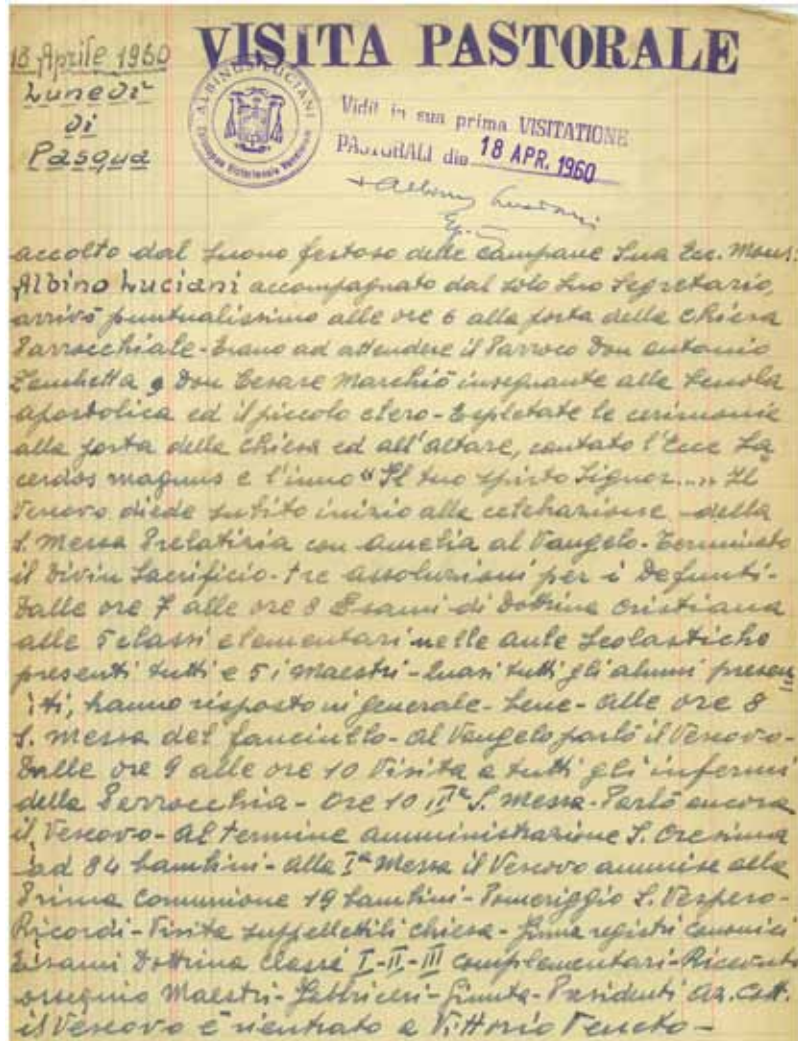 18 Aprile 1960
Lunedì
di
Pasqua
VISITA PASTORALE
ALBINUS LUCIANI
Vidit in sua prima VISITATIONE
PASTORALI die 18 APR. 1960
+ Albino Luciani
Ep.
accolto dal suono festoso delle campane Sua Ecc. Mons.
Albino Luciani accompagnato dal solo suo segretario,
arrivò puntualissimo alle ore 6 alla porta della Chiesa
Parrocchiale - Erano ad attendere il Parroco Don Antonio
Zanchetta e Don Cesare Marchiò insegnante alle Scuola
apostolica ed il piccolo clero - Espletate le cerimonie
alla porta della Chiesa ed all'altare, cantato l'Ecce Sa
cerdos magnus e l'inno "Il tuo spirto Signor...." Il
Vescovo diede subito inizio alla celebrazione della
S. Messa Prelatizia con Omelia al Vangelo - Terminato
il Divin Sacrificio - tre assoluzioni per i Defunti -
Dalle ore 7 alle ore 8 Esami di Dottrina Cristiana
alle 5 classi elementari nelle aule scolastiche
presenti tutti e 5 i Maestri - Quasi tutti gli alunni presen
ti, hanno risposto in generale - bene - alle ore 8
S. Messa del fanciullo - al Vangelo parlò il Vescovo -
Dalle ore 9 alle ore 10 Visita a tutti gli infermi
della Parrocchia - Ore 10 IIª S. Messa - Parlò ancora
il Vescovo - al termine amministrazione S. Cresima
ad 84 bambini - alla Iª Messa il Vescovo ammise alla
Prima Comunione 19 bambini - Pomeriggio S. Vespero -
Ricordi - Visita suppellettili chiesa - firma registri canonici
Esami Dottrina classi I - II - III complementari - Ricevuto
ossequio Maestri - Fabbriceri - Giunta - Presidenti Az. Catt.
il Vescovo è rientrato a Vittorio Veneto -